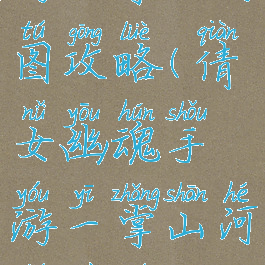 tú gōng lüè qiàn
图攻略(倩
nǚ yōu hún shǒu
女幽魂手
yóu yī zhǎng shān hé
游一掌山河